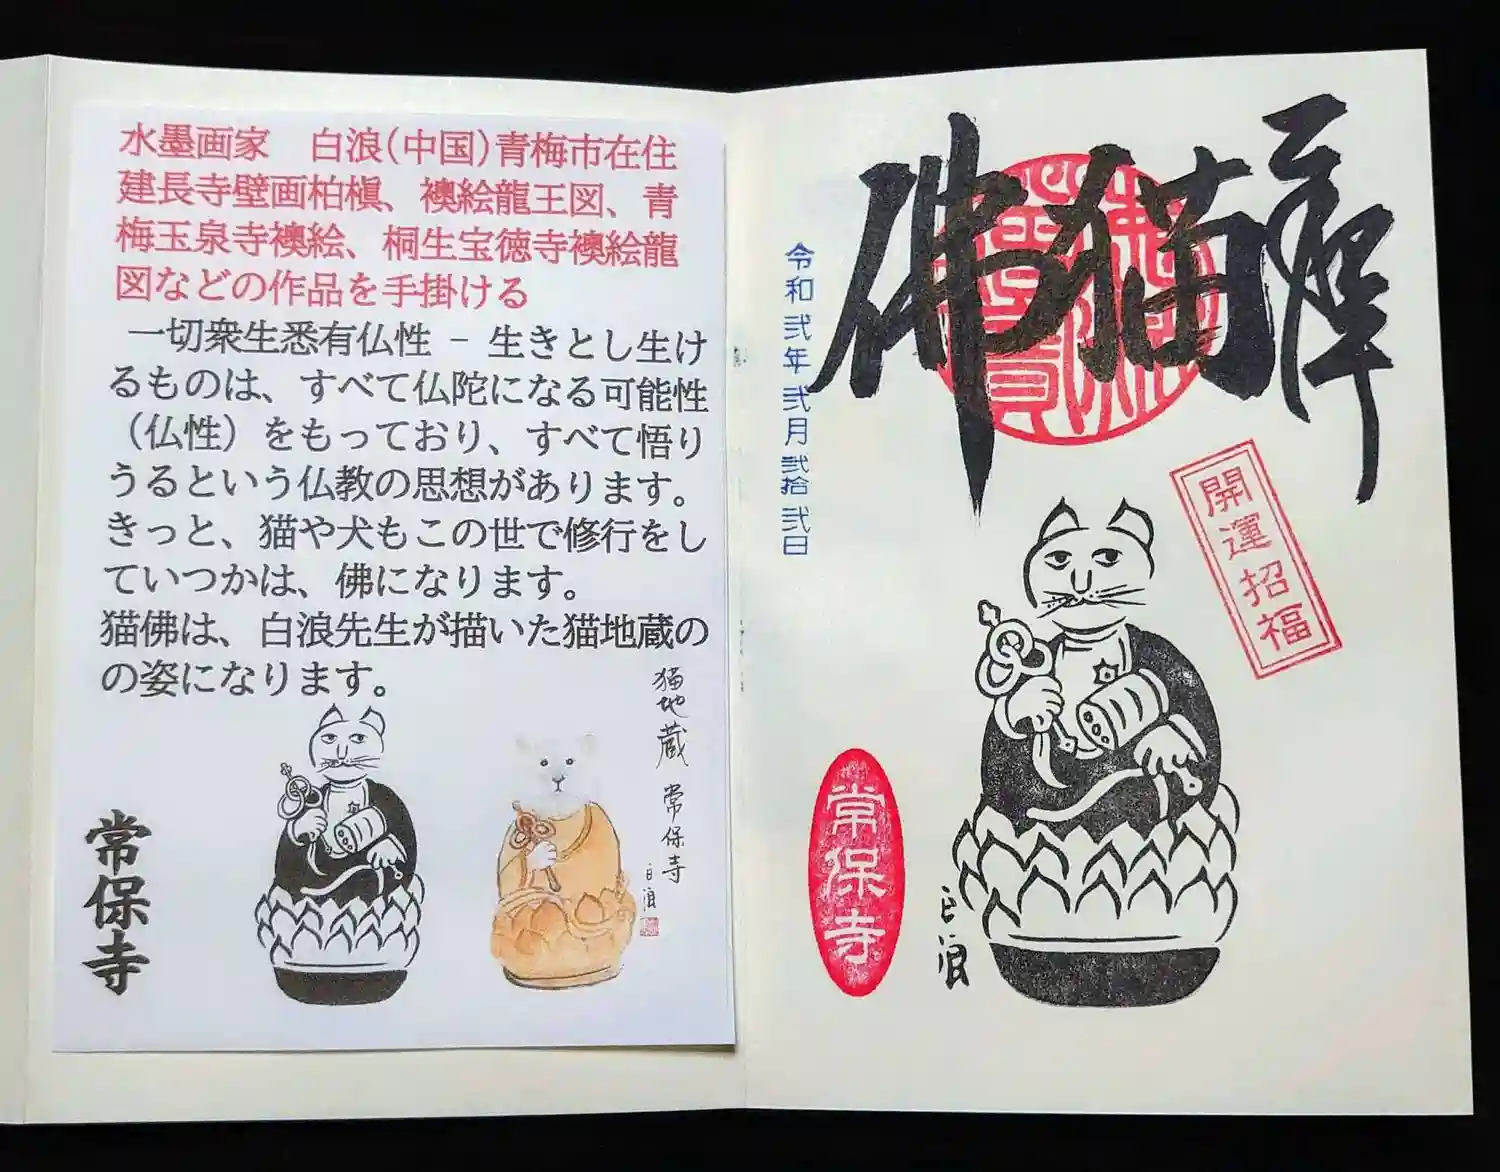 水墨画家　白浪(中国)青梅市在住
建長寺壁画柏槇、襖絵龍王図、青
梅玉泉寺襖絵、桐生宝徳寺襖絵龍
図などの作品を手掛ける
一切衆生悉有仏性 − 生きとし生け
るものは、すべて仏陀になる可能性
（仏性）をもっており、すべて悟り
うるという仏教の思想があります。
きっと、猫や犬もこの世で修行をし
ていつかは、佛になります。
猫佛は、白浪先生が描いた猫地蔵の
の姿になります。
猫地蔵 常保寺
白浪
常保寺
猫
佛
令和弐年弐月弐拾弐日
開運招福
常保寺
白浪